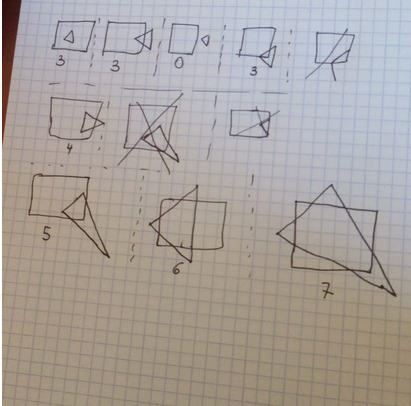 3 3 0 3
4
5 6 7